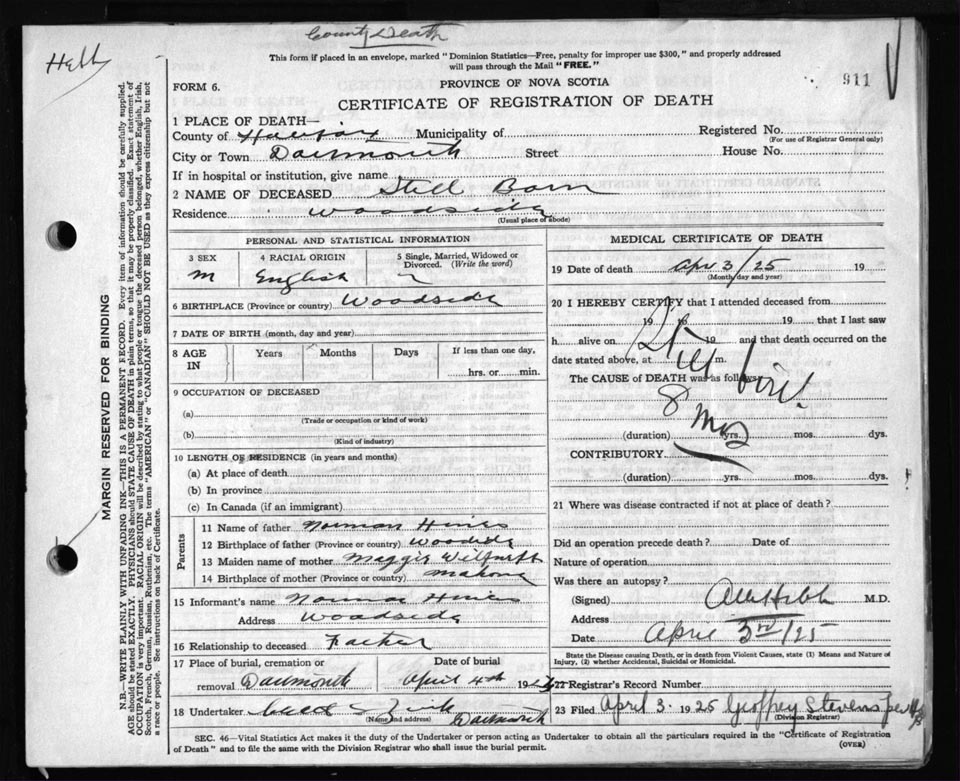 County Death
Hebb
This form if placed in an envelope, marked "Dominion Statistics—Free, penalty for improper use $300," and properly addressed
will pass through the Mail "FREE."
911
FORM 6.
PROVINCE OF NOVA SCOTIA
CERTIFICATE OF REGISTRATION OF DEATH
1 PLACE OF DEATH—
County of Halifax Municipality of Registered No.
(For use of Registrar General only)
City or Town Dartmouth Street House No.
If in hospital or institution, give name
2 NAME OF DECEASED Still Born
Residence Woodside
(Usual place of abode)
PERSONAL AND STATISTICAL INFORMATION
3 SEX 4 RACIAL ORIGIN 5 Single, Married, Widowed or Divorced. (Write the word)
M English
6 BIRTHPLACE (Province or country) Woodside
7 DATE OF BIRTH (month, day and year)
8 AGE IN Years Months Days If less than one day,
hrs. or min.
9 OCCUPATION OF DECEASED
(a)
(Trade or occupation or kind of work)
(b)
(Kind of industry)
10 LENGTH OF RESIDENCE (in years and months)
(a) At place of death
(b) In province
(c) In Canada (if an immigrant)
Parents
11 Name of father Norman Hines
12 Birthplace of father (Province or country) Woodside
13 Maiden name of mother Maggie
14 Birthplace of mother (Province or country) Mahone
15 Informant's name Norman Hines
Address Woodside
16 Relationship to deceased Father
17 Place of burial, cremation or Date of burial
removal Dartmouth April 4th 192
18 Undertaker Dartmouth
(Name and address)
MEDICAL CERTIFICATE OF DEATH
19 Date of death Apr 3/25 19
(Month, day and year)
20 I HEREBY CERTIFY that I attended deceased from
19 19 that I last saw
h alive on 19 and that death occurred on the
date stated above, at m.
Still born.
The CAUSE of DEATH was as follows
8 Mos
(duration) yrs. mos. dys.
CONTRIBUTORY
(duration) yrs. mos. dys.
21 Where was disease contracted if not at place of death?
Did an operation precede death? Date of
Nature of operation
Was there an autopsy?
(Signed) Hebb M.D.
Address
Date April 3rd/25
State the Disease causing Death, or in death from Violent Causes, state (1) Means and Nature of
Injury, (2) whether Accidental, Suicidal or Homicidal.
22 Registrar's Record Number
23 Filed April 3 1925 Geoffrey Stevens
(Division Registrar)
SEC. 46—Vital Statistics Act makes it the duty of the Undertaker or person acting as Undertaker to obtain all the particulars required in the "Certificate of Registration
of Death" and to file the same with the Division Registrar who shall issue the burial permit.
(OVER)
MARGIN RESERVED FOR BINDING
N.B.—WRITE PLAINLY WITH UNFADING INK—THIS IS A PERMANENT RECORD. Every item of information should be carefully supplied.
AGE should be stated EXACTLY. PHYSICIANS should STATE CAUSE OF DEATH in plain terms, so that it may be properly classified. Exact statement of
OCCUPATION is very important. RACIAL ORIGIN will be described by stating to what people or tongue the deceased person belonged, whether English, Irish,
Scotch, French, German, Russian, Ruthenian, etc. The terms "AMERICAN" or "CANADIAN" SHOULD NOT BE USED as they express citizenship but not
a race or people. See instructions on back of Certificate.